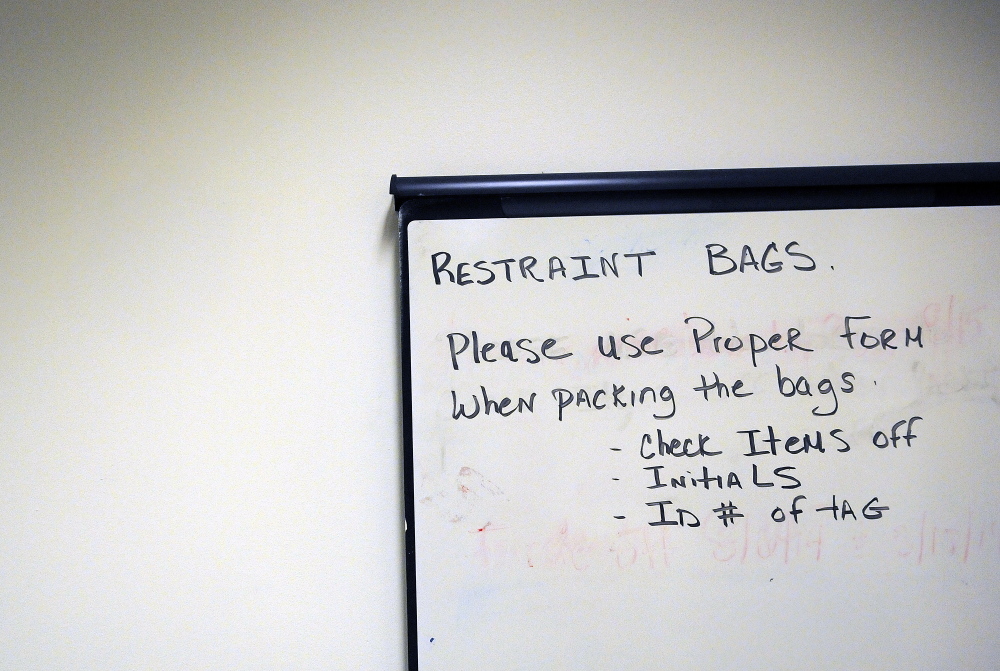 RESTRAINT BAGS.
Please use Proper FORM
When packing the bags.
- Check Items off
- Initials
- ID # of tAG